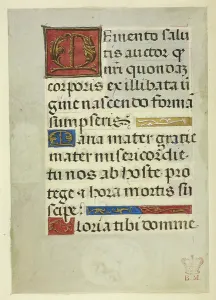 Memento salu
tis auctor q
nr̄i quondaz
corporis ex illibata ꝟ
gine nascendo formā
sumpseris
Maria mater gratie
mater misericordie
tu nos ab hoste pro
tege & hora mortis su
scipe
Gloria tibi domine